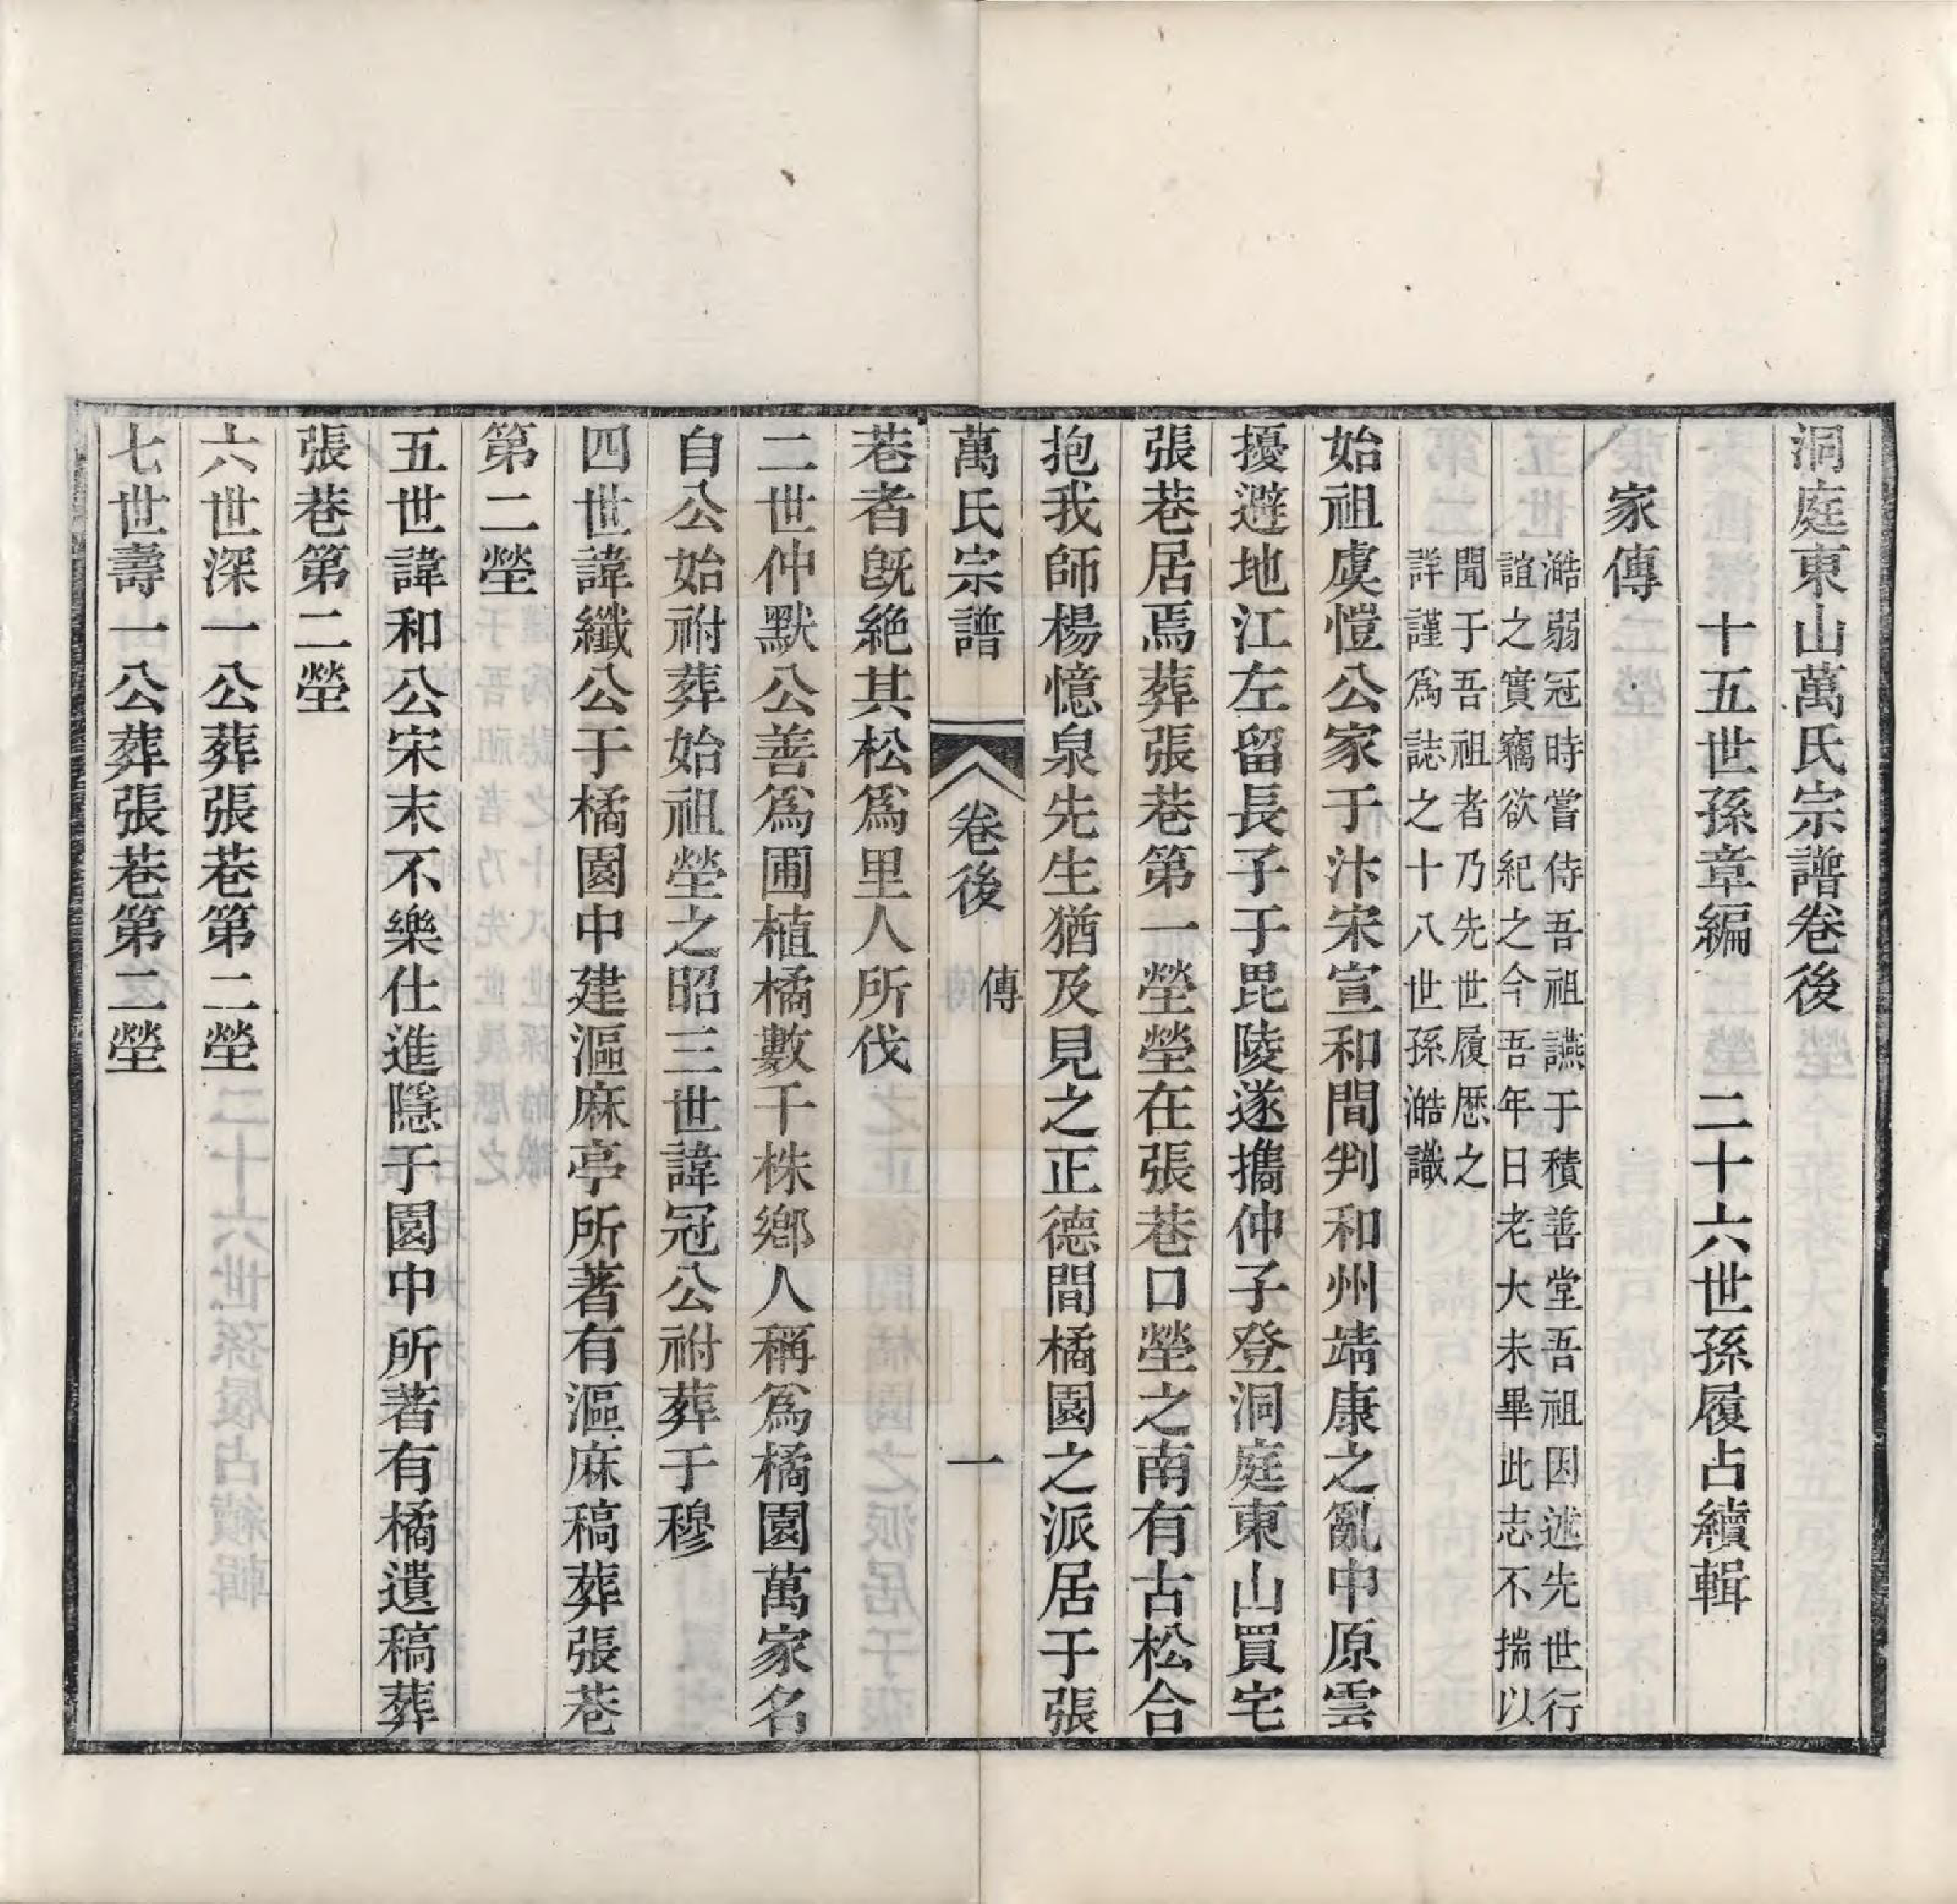 洞庭東山萬氏宗譜卷後
十五世孫章編　二十六世孫履占續輯
家傳
澔弱冠時嘗侍吾祖讌于積善堂吾祖因述先世行
誼之實竊欲紀之今吾年日老大未畢此志不揣以
聞于吾祖者乃先世履歷之
詳謹爲誌之十八世孫澔識
始祖虞愷公家于汴宋宣和間判和州靖康之亂中原雲
擾避地江左留長子于毘陵遂攜仲子登洞庭東山買宅
張巷居焉葬張巷第一塋塋在張巷口塋之南有古松合
抱我師楊憶泉先生猶及見之正德間橘園之派居于張
萬氏宗譜　卷後　傳　一
巷者旣絶其松爲里人所伐
二世仲默公善爲圃植橘數千株鄉人稱爲橘園萬家名
自公始祔葬始祖塋之昭三世諱冠公祔葬于穆
四世諱纖公于橘園中建漚麻亭所著有漚麻稿葬張巷
第二塋
五世諱和公宋末不樂仕進隱于園中所著有橘遺稿葬
張巷第二塋
六世深一公葬張巷第二塋
七世壽一公葬張巷第二塋